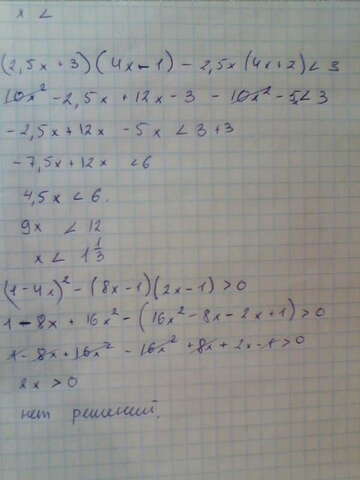 x <
(2,5x + 3)(4x - 1) - 2,5x(4x + 2) < 3
10x² - 2,5x + 12x - 3 - 10x² - 5 < 3
- 2,5x + 12x - 5x < 3 + 3
- 7,5x + 12x < 6
4,5x < 6.
9x < 12
x < 1 1/3
(1 - 4x)² - (8x - 1)(2x - 1) > 0
1 - 8x + 16x² - (16x² - 8x - 2x + 1) > 0
1 - 8x + 16x² - 16x² + 8x + 2x - 1 > 0
2x > 0
нет решений.